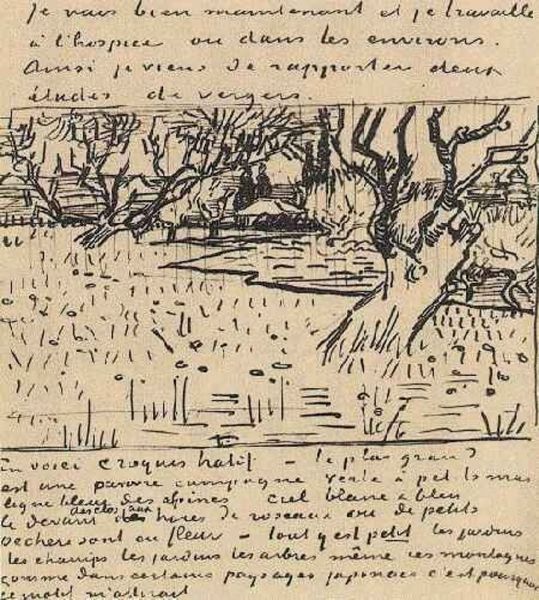 Je vais bien maintenant et je travaille
à l'hospice ou dans les environs.
Ainsi je viens de rapporter deux
études de vergers.
En voici croquis hatif – le plus grand
est une pauvre campagne verte à pet ts mas
ligne bleue des alpines ciel blanc & bleu
le devant des clos aux haies de roseaux ou de petits
pechers sont en fleur – tout y est petit les jardins
les champs les jardins les arbres même ces montagnes
comme dans certains paysages japonais c'est pourquoi
ce motif m'attirait